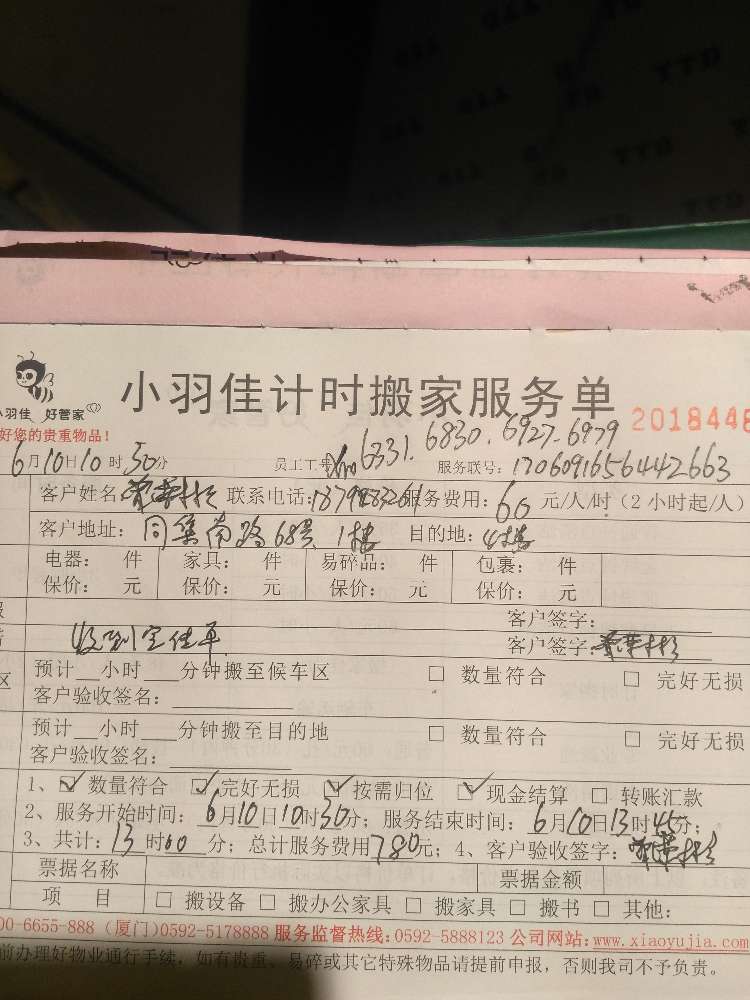 小羽佳计时搬家服务单 2018448
小羽佳 好管家
好您的贵重物品!
6月10日10时30分 员工工号: 6331.6830.6927.6979 服务联号: 1706091656442663
客户姓名: 联系电话: 服务费用: 60 元/人/时(2小时起/人)
客户地址: 同集南路68号 1楼 目的地: 4楼
电器: 件 家具: 件 易碎品: 件 包裹: 件
保价: 元 保价: 元 保价: 元 保价: 元
客户签字:
收到 客户签字:
区 预计__小时___分钟搬至候车区 □ 数量符合 □ 完好无损
客户验收签名:
预计__小时___分钟搬至目的地 □ 数量符合 □ 完好无损
客户验收签名:
1、☑数量符合 ☑完好无损 ☑按需归位 ☑现金结算 □ 转账汇款
2、服务开始时间: 6月10日10时30分; 服务结束时间: 6月10日13时45分;
3、共计: 13时00分; 总计服务费用780元; 4、客户验收签字:
票据名称 票据金额
项 目 □ 搬设备 □ 搬办公家具 □ 搬家具 □ 搬书 □ 其他:
00-6655-888 (厦门)0592-5178888 服务监督热线:0592-5888123 公司网站:www.xiaoyujia.com
前办理好物业通行手续, 如有贵重、易碎或其它特殊物品请提前申报, 否则我司不予负责。